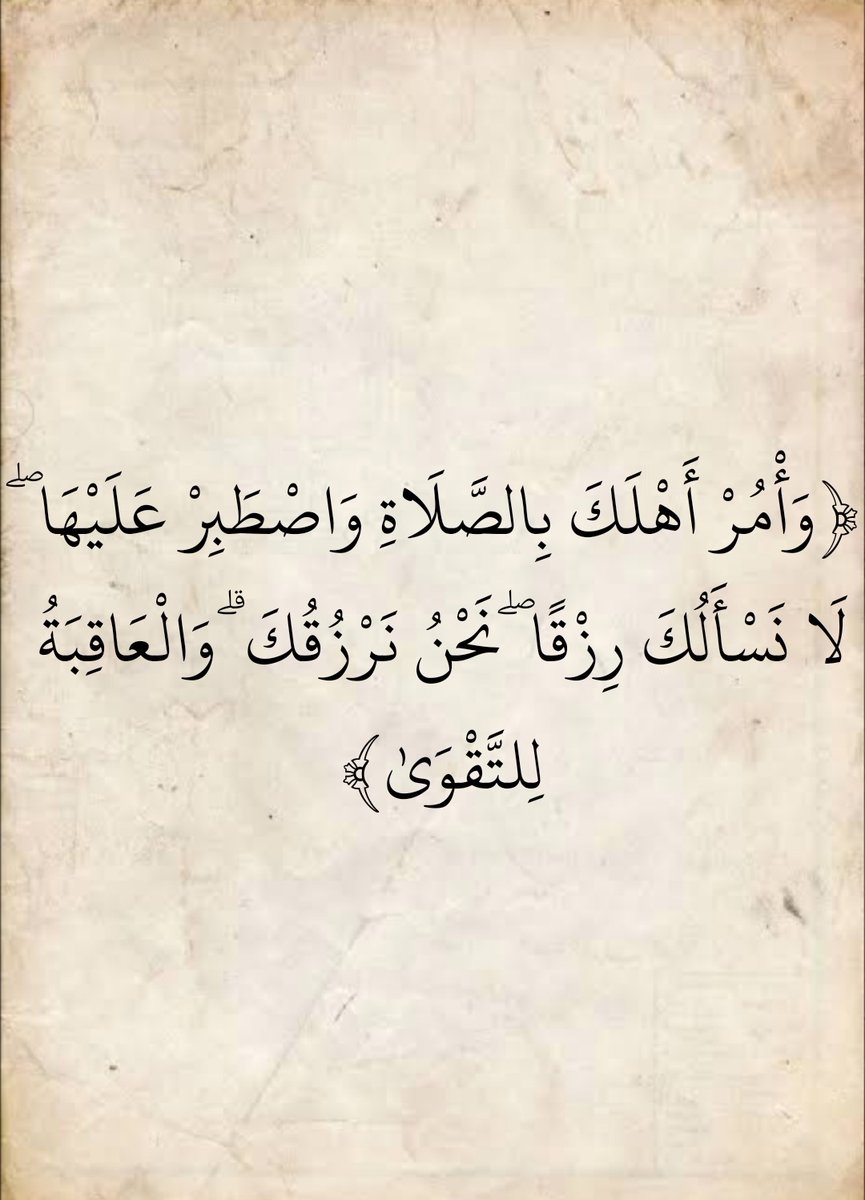 ﴿وَأْمُرْ أَهْلَكَ بِالصَّلَاةِ وَاصْطَبِرْ عَلَيْهَا ۖ
لَا نَسْأَلُكَ رِزْقًا ۖ نَحْنُ نَرْزُقُكَ ۗ وَالْعَاقِبَةُ
لِلتَّقْوَىٰ﴾